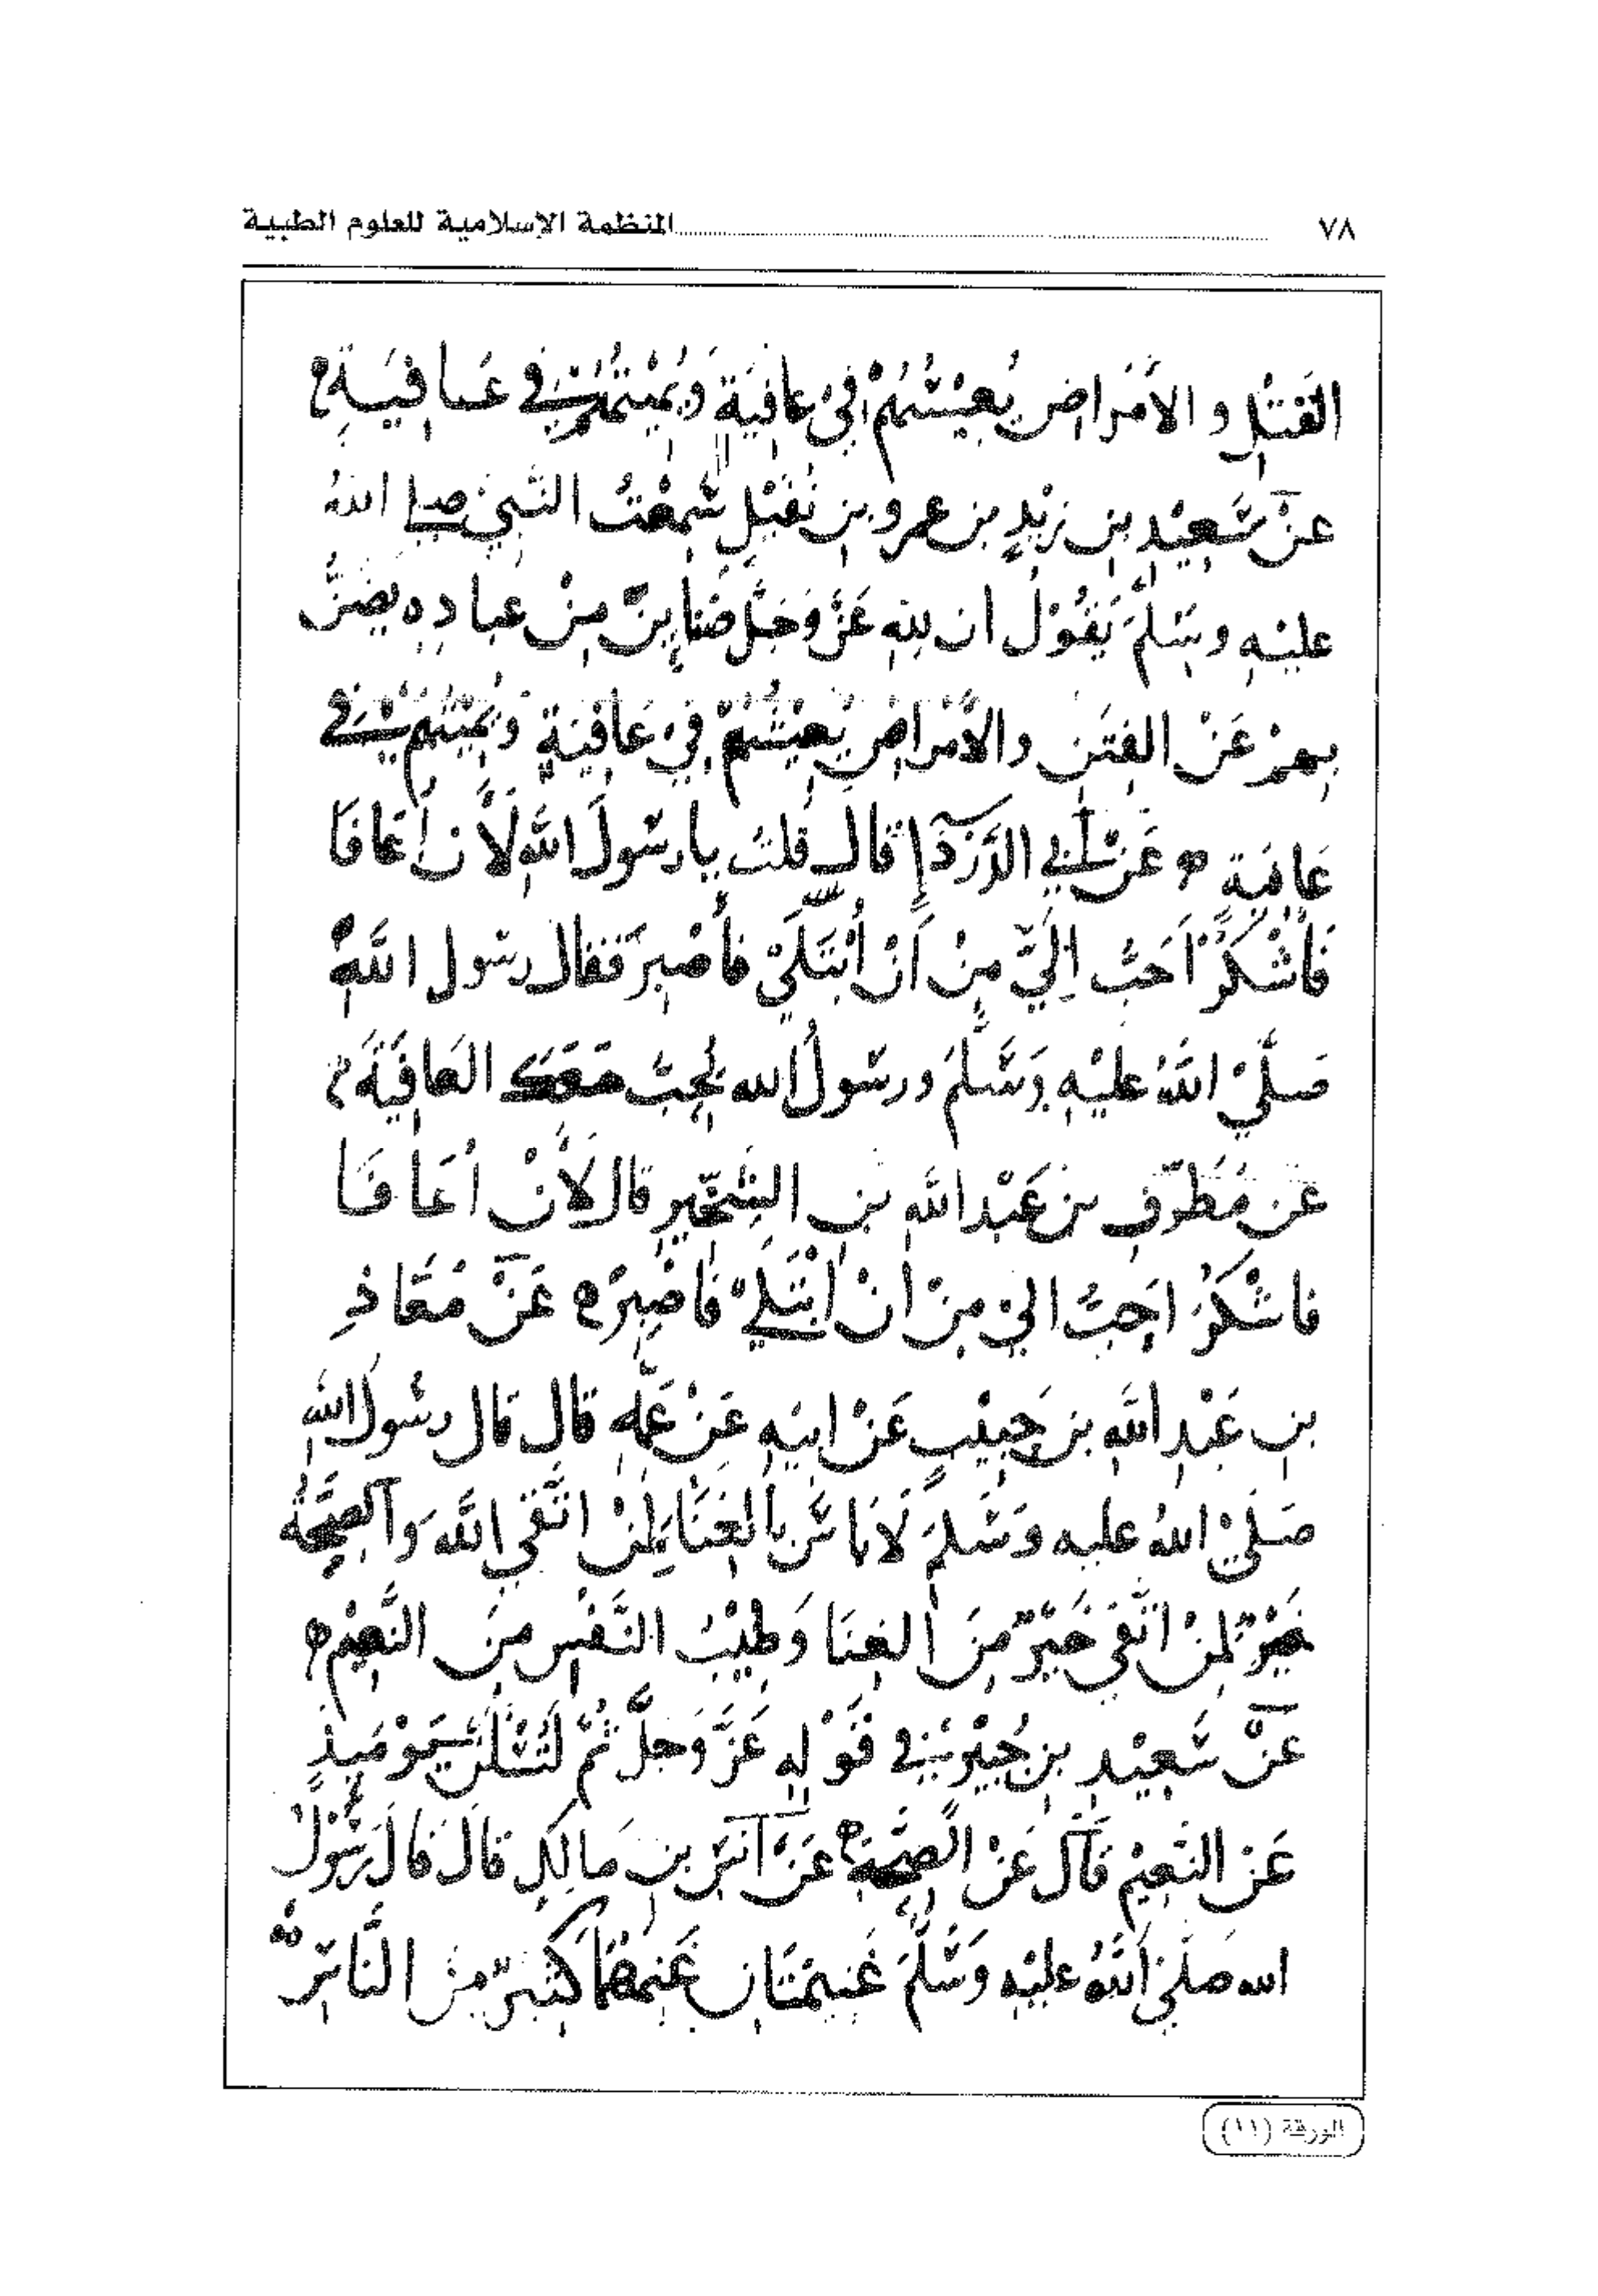 ٧٨ المنظمة الإسلامية للعلوم الطبية
القتل والأمراض يُعيشُهُمْ في عافية ويُميتُهُمْ في عَافِيَةٍ ه
عنْ سَعِيْدِ بنِ زيْدِ بن عمرو بنِ نُفَيْلٍ سَمِعْتُ النَّبيَّ صلى اللهُ
عليْهِ وسَلمَ يَقُوْلُ ان للهِ عَزَّ وَجَلَّ ضَنَاينَ مِنْ عبادِهِ يضنُّ
بهمْ عَنْ الفِتَنِ والأَمْرَاضِ يُعيْشُهُمْ فِي عَافيَةٍ وَيُميْتُهُمْ في
عَافية ه عَنْ أبي الدَّرْدَاءِ قال قلت يا رسُولَ اللهِ لَأَن أُعَافَا
فَأَشْكُرَ أَحَبُّ إِليَّ مِنْ أَنْ أُبْتَلَيْ فأَصْبِرَ فقال رسُول اللهِ
صَلَّيْ اللهُ عَليْهِ وَسَّلمَ ورسُولُ الله يُحِبُّ مَعَكَ العَافِيَةَ ه
عَن مُطَرّفِ بن عَبْدِ اللهِ بن الشِّخّيرِ قال لَأَنْ أُعَافَا
فاشْكُرَ احَبُّ اليَّ مِنْ انْ ابْتَلَيْ فَاصْبِرَ ه عَنْ مُعَاذِ
بن عَبْدِ اللهِ بن خُبيْبٍ عَنْ ابيْهِ عَنْ عَمِّهِ قال قال رسُولُ اللهِ
صَلَّيْ اللهُ عليه وَسَّلمَ لَا بَاسَ بالغِنَا لِمَنْ اتَّقَي اللهَ وَالصِّحَّةُ
خَيْرٌ لمنْ اتَّقَي خَيْرٌ مِنَ الغِنَا وَطِيْبُ النَّفْسِ مِنَ النَّعِيْمِ ه
عَنْ سَعِيْدِ بن جُبَيْرٍ في قَوْلِهِ عَزَّ وَجلَّ ثُمَّ لَتُسْئَلُنَّ يَوْمَئِذٍ
عَنِ النَّعِيْمِ قَالَ عَنْ الصِّحَّةِ ه عَنْ أَنَسِ بنِ مَالِكِ قَالَ قَالَ رَسُوْلُ
الله صَلَّيْ اللهُ عليْهِ وَسَّلَّمَ غَنيمَتَانِ غَنِمَهُمَا كَثيرٌ مِنَ النَّاسِ
الورقة (١١)